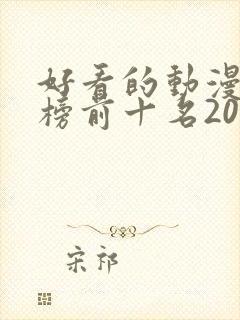 好看的動漫
榜前十名20
宋祁